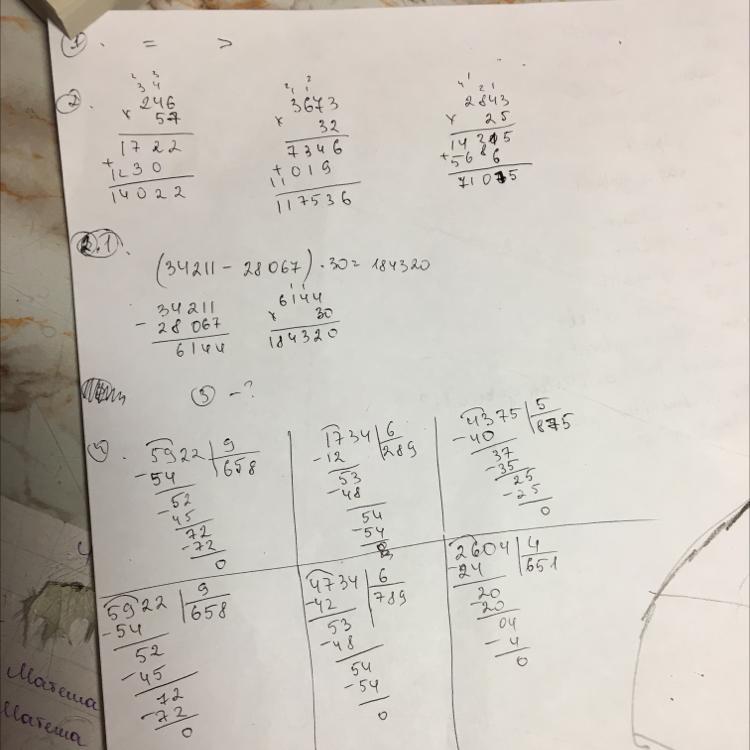 1. = >
2.
2 3
3 4
246
x 57
1722
+
1230
14022
2 2
1 1
3673
x 32
7346
+
11019
117536
4 2 1
1
2843
x 25
14215
+5686
71075
2.1.
(34211 - 28067) · 30 = 184320
34211
- 28067
6144
1 1
6144
x 30
184320
3 - ?
4.
5922 | 9
-54 658
52
-45
72
-72
0
1734 | 6
-12 289
53
-48
54
-54
0
4375 | 5
-40 875
37
-35
25
-25
0
5922 | 9
-54 658
52
-45
72
-72
0
4734 | 6
-42 789
53
-48
54
-54
0
2604 | 4
-24 651
20
-20
04
-4
0
Матеша
Матеша